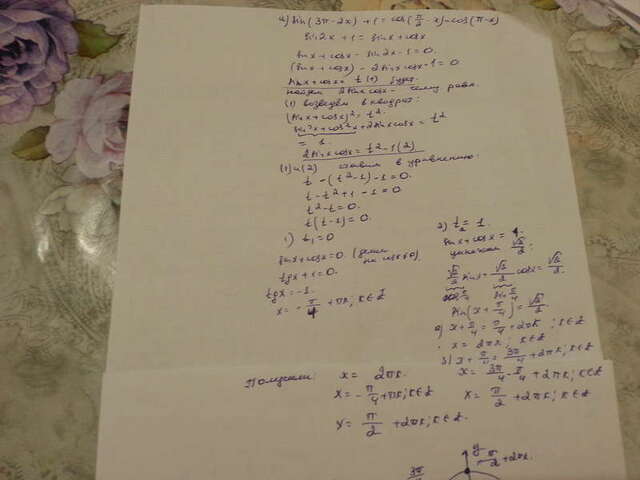 а) sin(3π-2x)+1=cos(π/2-x)-cos(π-x)
sin2x+1=sinx+cosx
sinx+cosx-sin2x-1=0.
(sinx+cosx)-2sinxcosx-1=0
sinx+cosx=t (1)
найдем 2sinxcosx- чему равн.
(1) возведем в квадрат:
(sinx+cosx)²=t²
sin²x+cos²x+2sinxcosx=t²
=1
2sinxcosx=t²-1(2)
(1)и(2) ставим в уравнение:
t-(t²-1)-1=0.
t-t²+1-1=0
t²-t=0.
t(t-1)=0.
1) t₁=0
sinx+cosx=0. (делим на cosx≠0).
tgx+1=0.
tgx=-1.
x=-π/4+πk; k∈Z
2) t₂=1
sinx+cosx=1.
умножаем √2/2:
√2/2 sinx+√2/2 cosx=√2/2.
cosπ/4 sinπ/4
sin(x+π/4)=√2/2.
а) x+π/4=π/4+2πk; k∈Z
x=2πk; k∈Z
x+π/4=3π/4+2πk; k∈Z
x=3π/4-π/4+2πk; k∈Z
x=π/2+2πk; k∈Z
Получили: x=2πk
x=-π/4+πk; k∈Z
x=π/2+2πk; k∈Z.
y
π/2+2πk